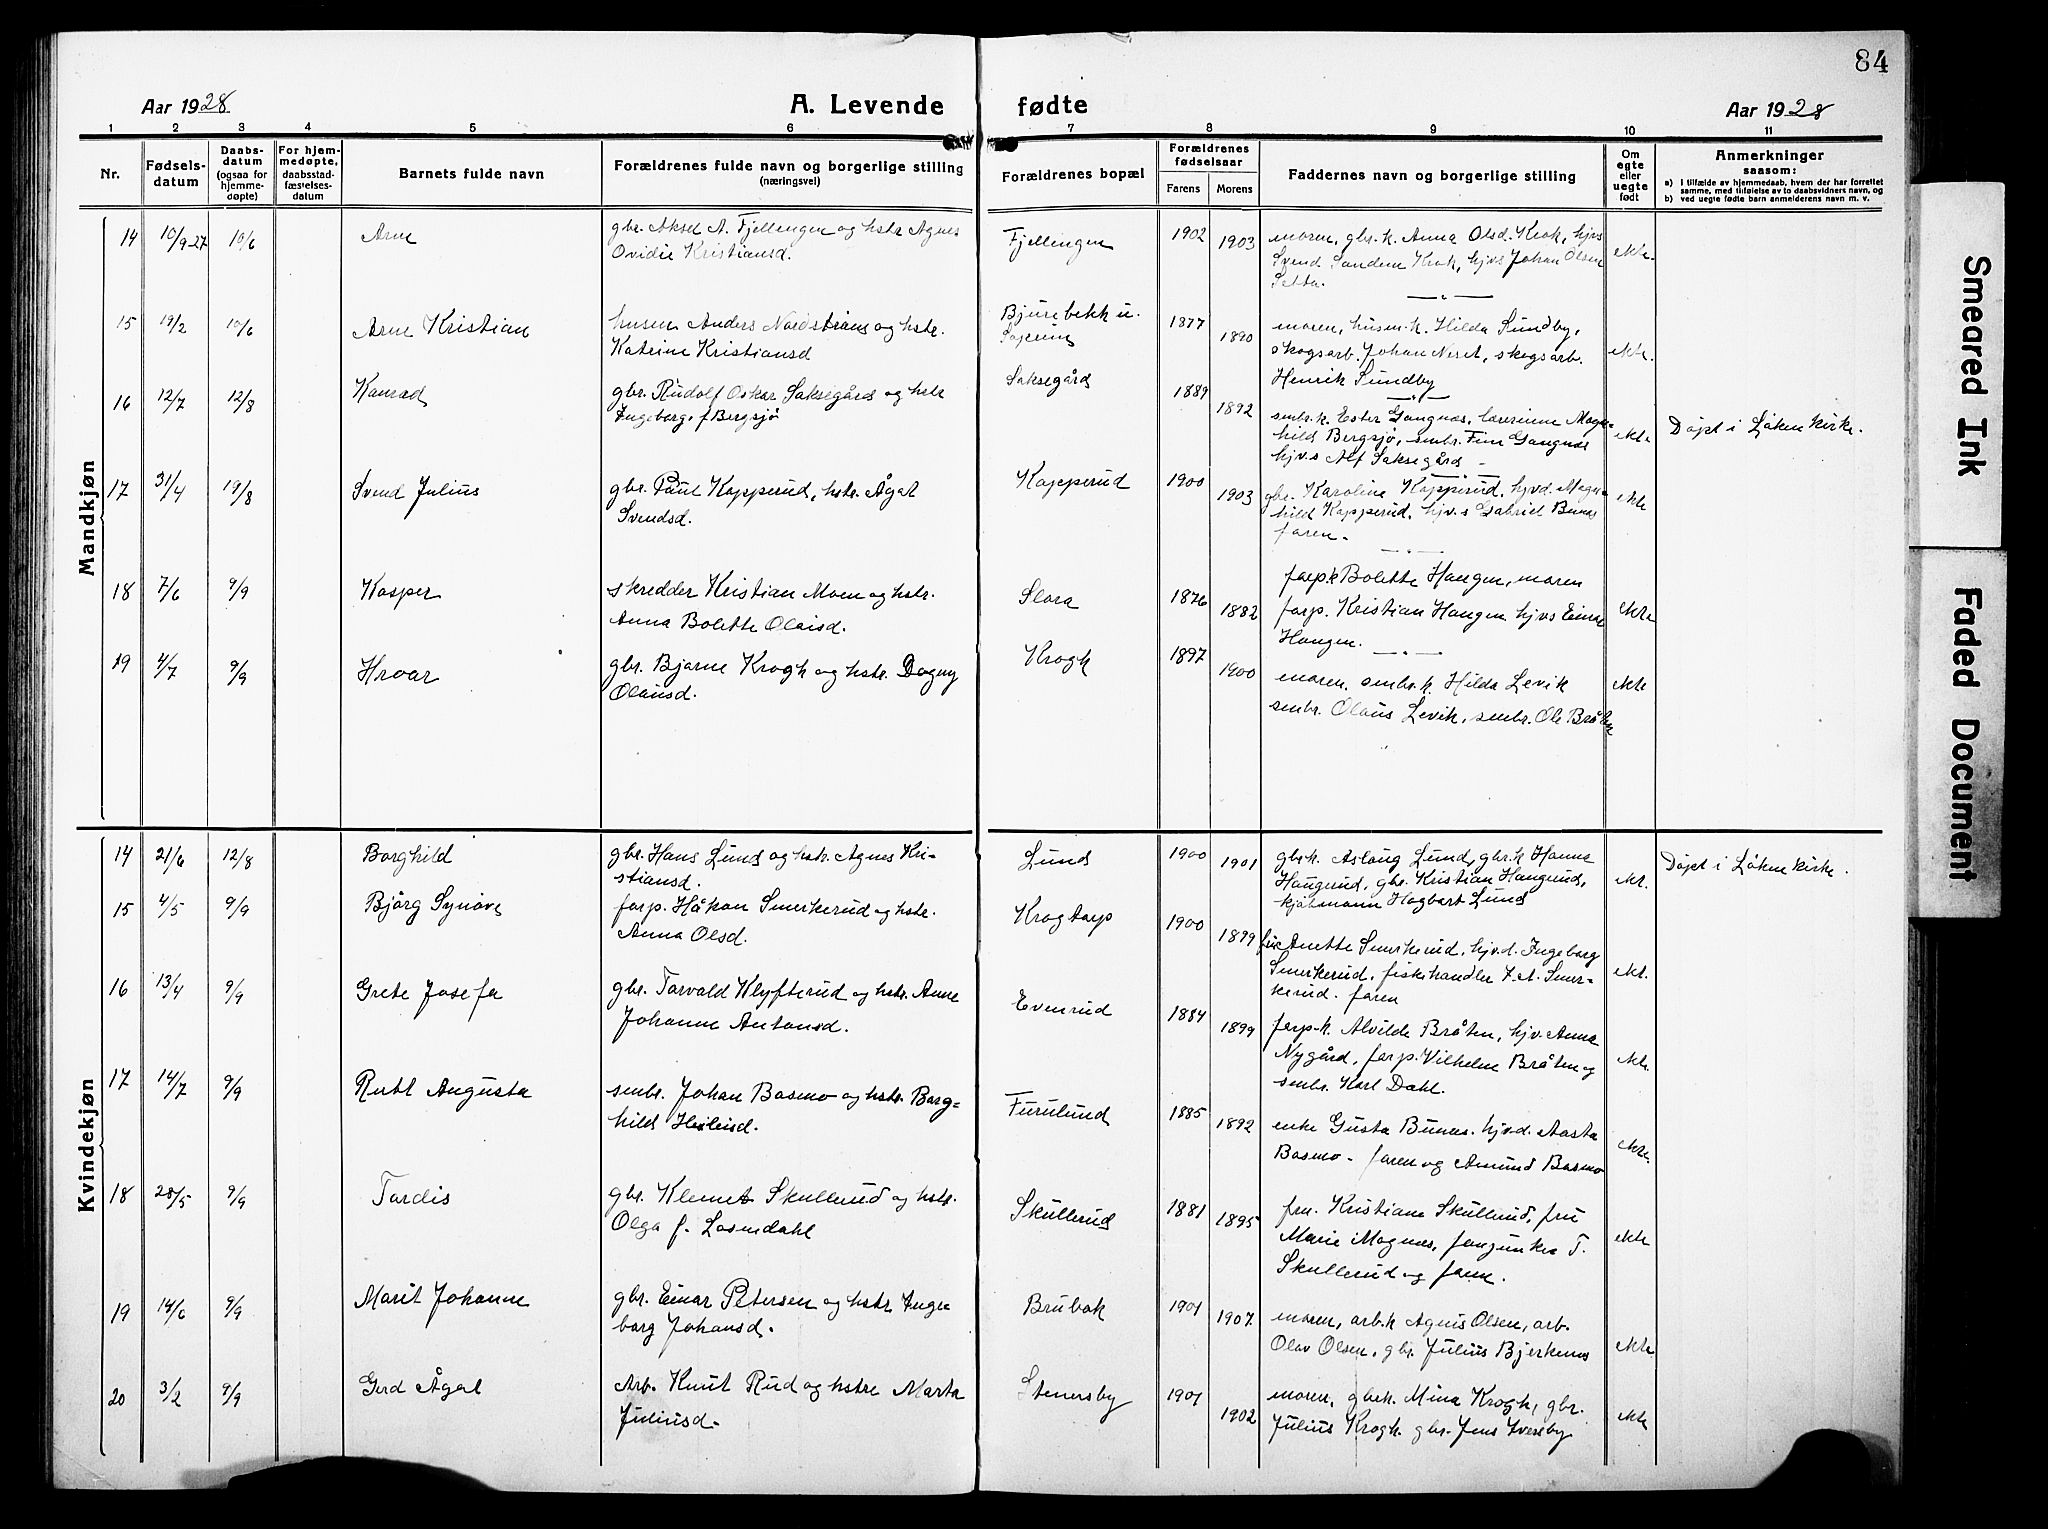 84
Aar 1928
A. Levende fødte
Aar 1928
1 2 3 4 5 6 7 8 9 10 11
Nr.
Fødsels-
datum
Daabs-
datum
(ogsaa for
hjemme-
døpte)
For hjem-
medøpte,
daabsstad-
fæstelses-
datum
Barnets fulde navn
Forældrenes fulde navn og borgerlige stilling
(næringsvei)
Forældrenes bopæl
Forældrenes
fødselsaar
Farens Morens
Faddernes navn og borgerlige stilling
Om
egte
eller
uegte
født
Anmerkninger
saasom:
a) i tilfælde av hjemmedaab, hvem der har forrettet
samme, med tilføielse av to daabsvidners navn, og
b) ved uegte fødte barn anmelderens navn m. v.
Mandkjøn
14 10/9 27 10/6 Arne
gbr. Aksel A. Fjellengen og hstr Agnes
Ovidie Kristiansd.
Fjellengen 1902 1903
moren, gbr.k. Anna Olsd. Krok, hjvs
Svend Sandem Krok, hjvs Johan Olsen
Setta.
ekte.
15 19/2 10/6 Arne Kristian
husm. Anders Nordstrøms og hstr.
Katrine Kristiansd
Bjurebekk u.
1877 1890
moren, husm.k. Hilda Sundby,
skogsarb. Johan Neset, skogsarb.
Henrik Sundby
ekte.
16 12/7 12/8 Konrad
gbr. Rudolf Oskar Saksegård og hstr
Ingeborg f. Bergsjø
Saksegård 1889 1892
smbr.k. Ester Gangnæs, lærerinne Mag-
hild Bergsjø, smbr. Finn Gangnæs
hjv.s Alf Saksegård
ekte
Døpt i Løken kirke.
17 31/4 19/8 Svend Julius
gbr. Paul Kopperud, hstr. Ågot
Svendsd.
Kopperud 1900 1903
gbr. Karoline Kopperud, hjvd. Mag-
hild Kopperud, hjv.s Gabriel Bunes
faren.
ekte
18 7/6 9/9 Kasper
skredder Kristian Moen og hstr.
Anna Bolette Olaisd.
Slora 1876 1882
forp.k Bolette Haugen, moren
forp. Kristian Haugen hjvs Einar
Haugen.
ekte
19 4/7 9/9 Hroar
gbr. Bjarne Krogh og hstr. Dagny
Olausd.
Krogh 1897 1900
moren, smbr.k. Hilda Levik
smbr. Olaus Levik, smbr. Ole Bråten
ekte
Kvindekjøn
14 21/6 12/8 Borghild
gbr. Hans Lund og hstr. Agnes Kri-
stiansd.
Lund 1900 1901
gbr.k. Aslaug Lund, gbr.k Hanna
Haugerud, gbr. Kristian Haugerud,
kjøbmann Hagbart Lund
ekt.
Døpt i Løken kirke.
15 4/5 9/9 Bjørg Synøve
forp. Håkon Smerkerud og hstr.
Anna Olsd.
Krogtorp 1900 1899
fru Anette Smerkerud, hjv.d. Ingeborg
Smerkerud, fiskehandler T. A. Smer-
kerud. faren
ekt.
16 13/4 9/9 Grete Josefa
gbr. Torvald Klyfterud og hstr. Anne
Johanne Antonsd.
Evenrud 1884 1899
forp.k. Alvilde Bråten, hjv. Anna
Nygård, forp. Vilhelm Bråten og
smbr. Karl Dahl.
ekte.
17 14/7 9/9 Rutt Augusta
smbr. Johan Basmo og hstr. Borg-
hild
Furulund 1885 1892
enke Gusta Bunes. hjv.d. Aasta
Basmo. faren og Amund Basmo
ekte.
18 28/5 9/9 Tordis
gbr. Klemet Skullerud og hstr.
Olga f. Losmdahl
Skullerud 1881 1895
frn. Kristiane Skullerud, fru
Marie Magnæs, forpunker T.
Skullerud og faren.
ekte
19 14/6 9/9 Marit Johanne
gbr. Einar Petersen og hstr. Inge-
borg Johansd.
Brubak 1901 1907
moren, arb.k Agnes Olsen, arb.
Olav Olsen, gbr. Julius Bjerkenes
ekte
20 3/2 9/9 Gerd Ågot
Arb. Knut Rud og hstre Marta
Juliusd.
Stenersby 1901 1902
moren, gbr.k. Mina Krogh, gbr.
Julius Krogh. gbr. Jens Ivesby
ekte
Smeared Ink
Faded Document